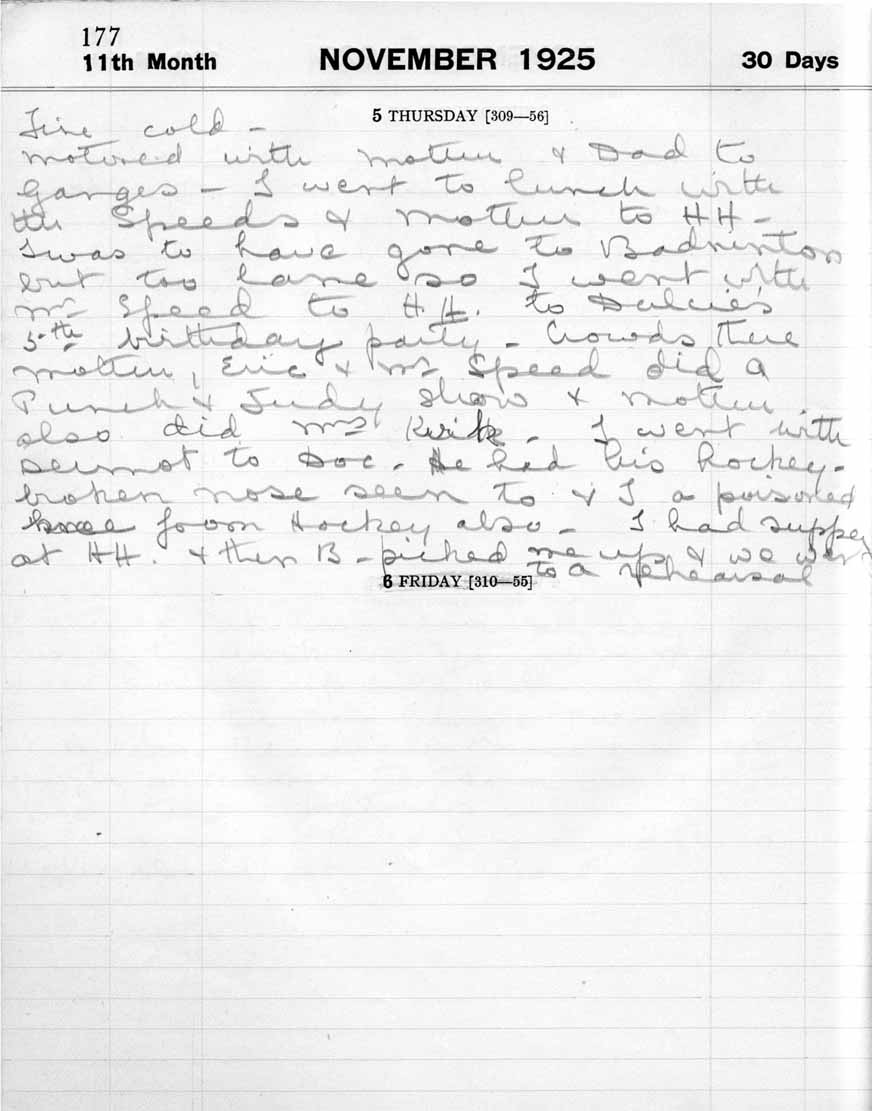 177
11th Month NOVEMBER 1925 30 Days
5 THURSDAY [309—56]
Fine cold -
motored with mother & Dad to
Ganges - I went to lunch with
the Speeds & mother to HH -
I was to have gone to Badminton
but too lame so I went with
Mr Speed to H.H. to Dulcie's
5th birthday party - Crowds there
mother, Eric & Mr Speed did a
Punch & Judy show & mother
also did Mrs - I went with
to Doc - He had his hockey-
broken nose seen to & I a poisoned
knee from Hockey also - I had supper
at HH. & then B - picked me up & we went
to a rehearsal
6 FRIDAY [310—55]